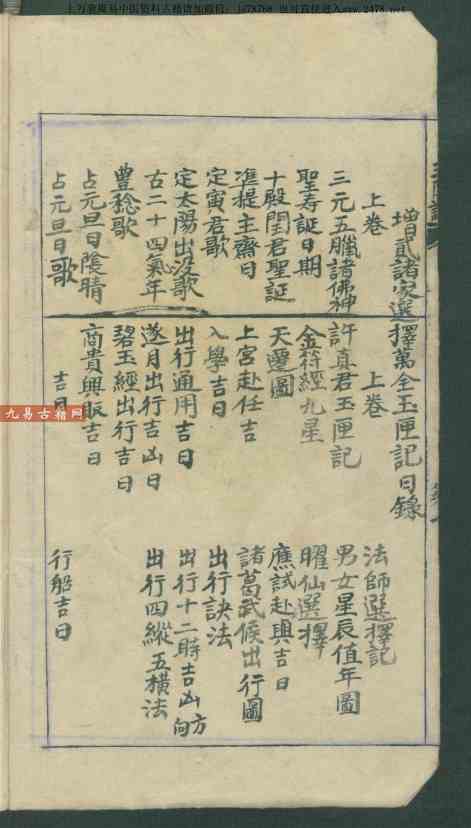 增貳諸家選擇萬全玉匣記目錄
上卷
上卷
法師選擇記
三元五臘諸佛神
許真君玉匣記
男女星辰值年圖
聖寿誕日期
金符經九星
曜仙選擇
十殿閆君聖誕
天
圖
應試赴舉吉日
準提主齋日
上官赴任吉
諸葛武候出行圖
定寅君歌
入學吉日
出行訣法
定太陽出没歌
出行通用吉日
出行十二時吉凶方向
古二十四氣年
逐月出行吉凶日
出行四縱五横法
豊稔歌
碧玉經出行吉日
占元旦日陰晴
商貴興販吉日
占元旦日歌
吉日
行船吉日
九易古籍网